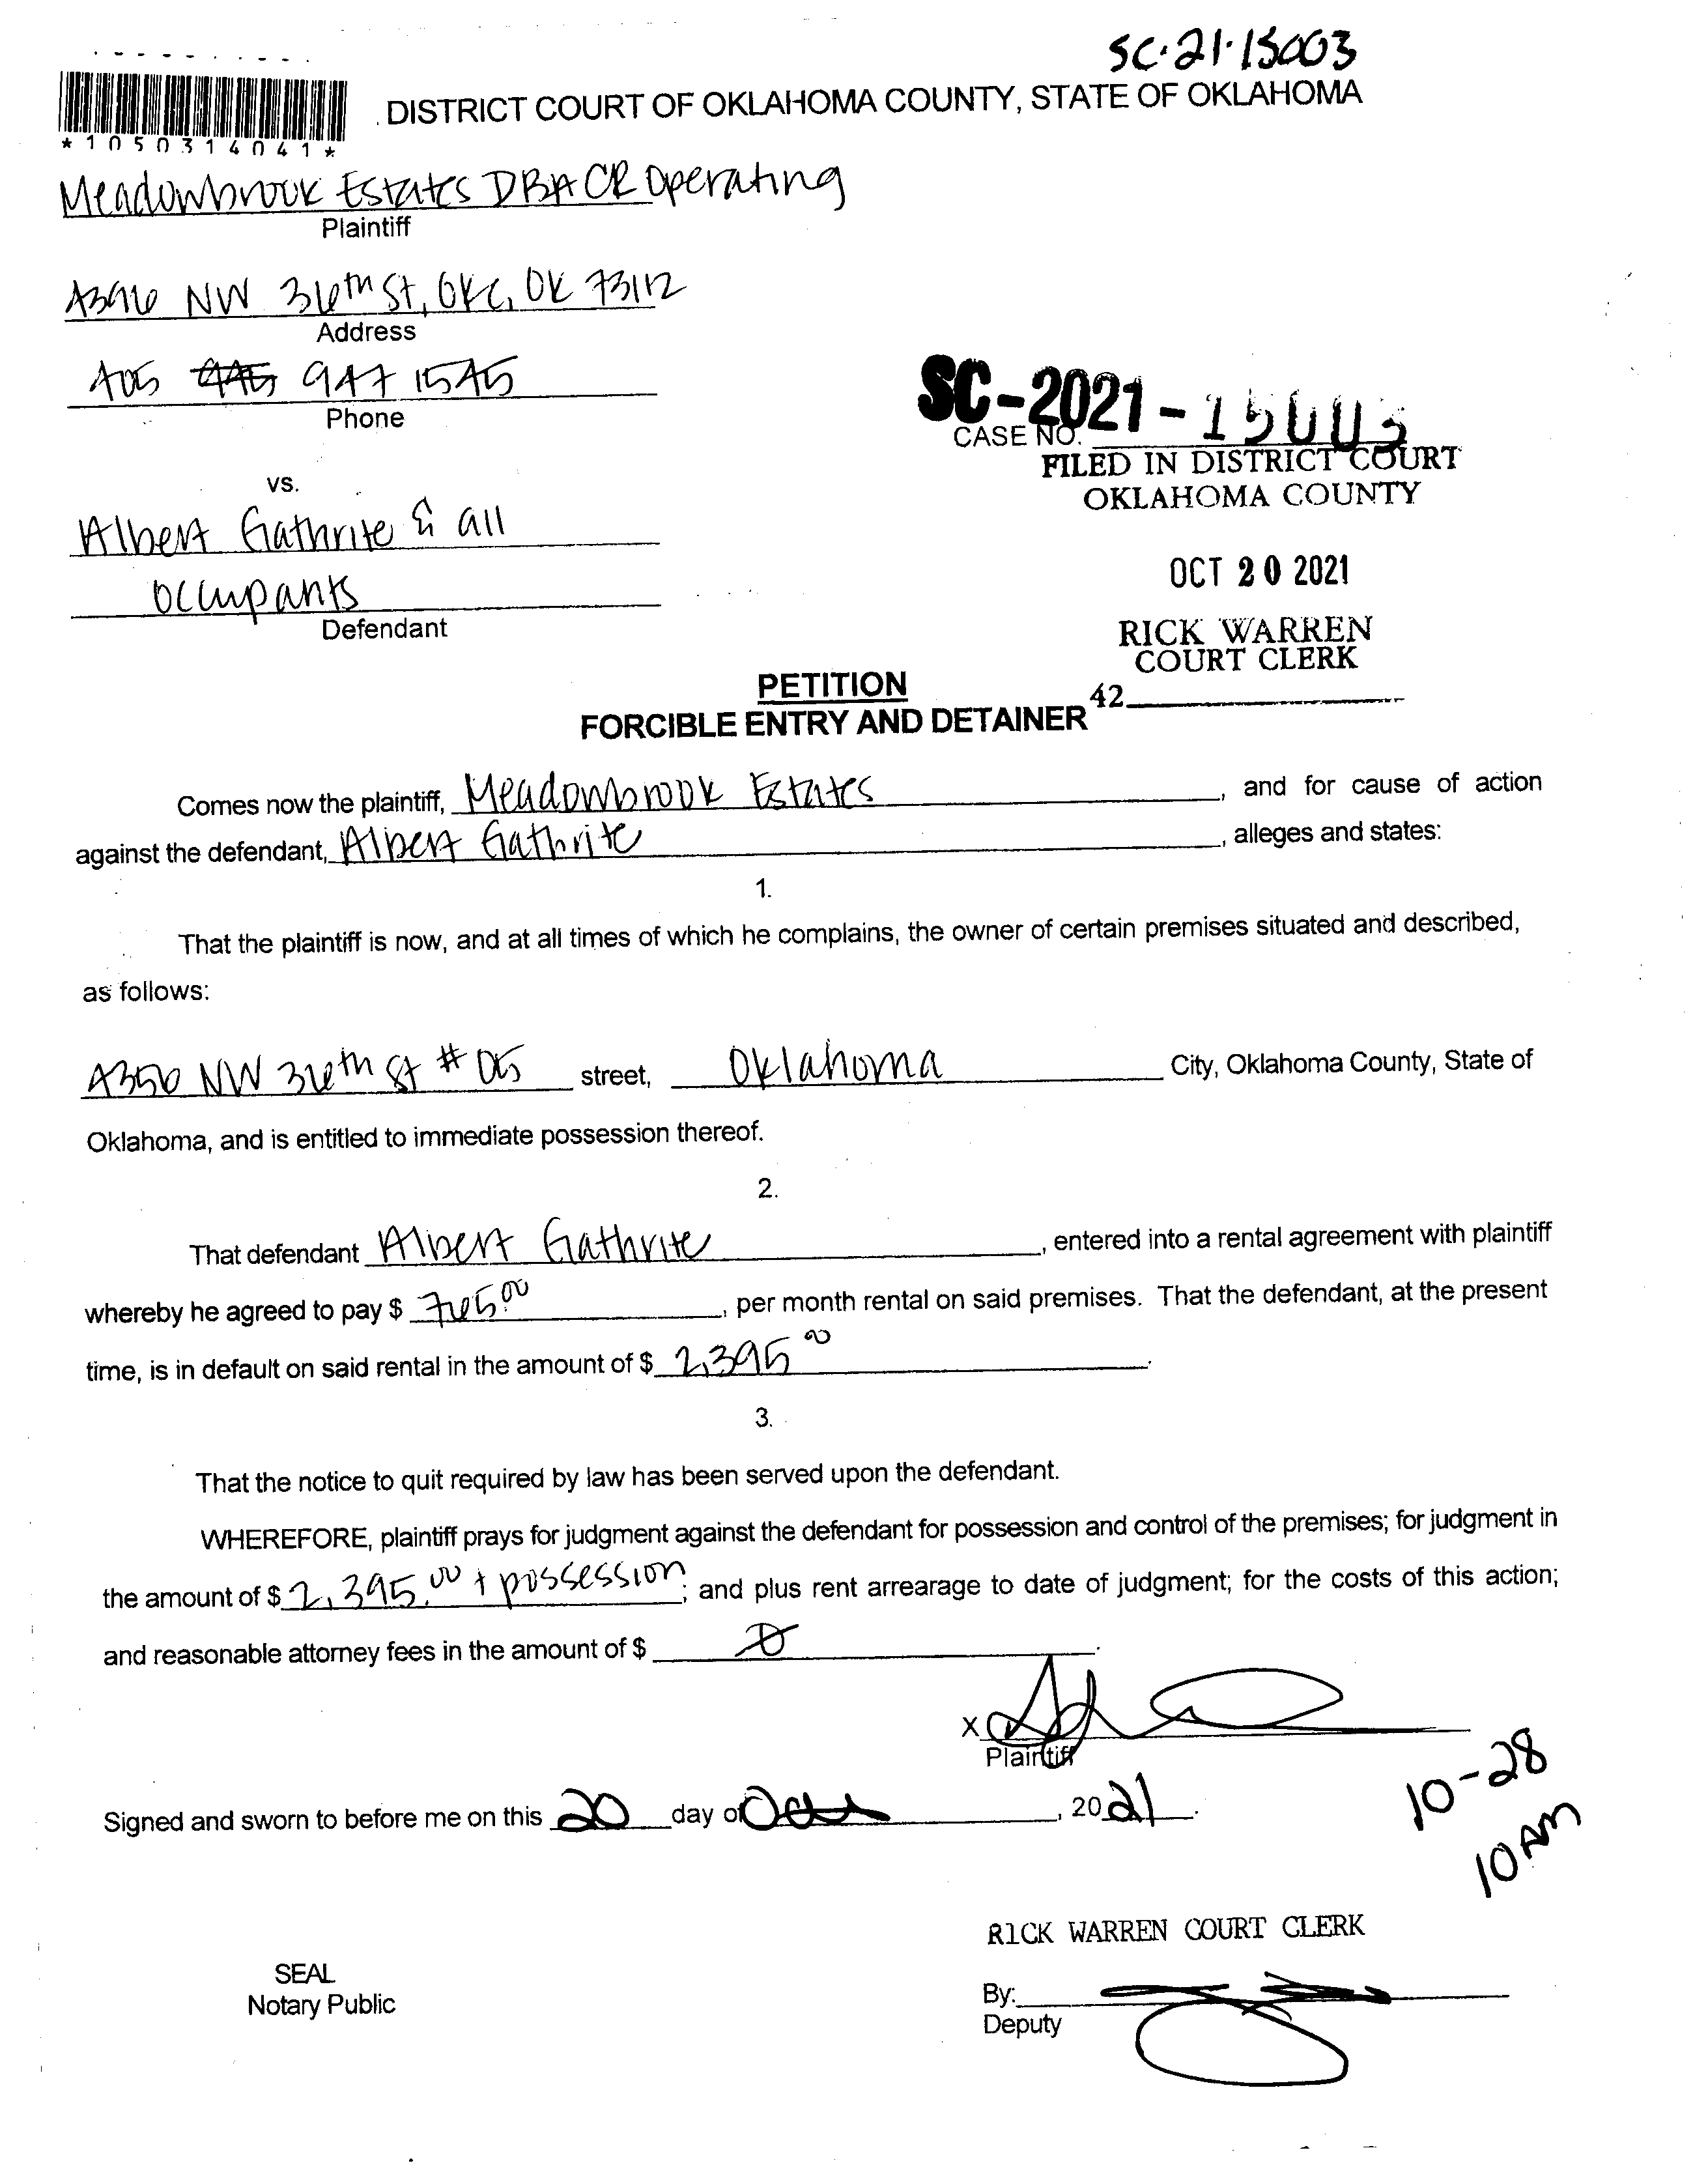 SC-21-15003
*1050314041*
DISTRICT COURT OF OKLAHOMA COUNTY, STATE OF OKLAHOMA
Meadowbrook Estates DBA CR Operating
Plaintiff
NW 36th St, OKC, OK 73112
Address
405 947 1545
Phone
SC-2021-15003
CASE NO.
FILED IN DISTRICT COURT
OKLAHOMA COUNTY
vs.
Albert Gathrite & all
occupants
Defendant
OCT 20 2021
RICK WARREN
COURT CLERK
42
PETITION
FORCIBLE ENTRY AND DETAINER
Comes now the plaintiff, Meadowbrook Estates, and for cause of action
against the defendant, Albert Gathrite, alleges and states:
1.
That the plaintiff is now, and at all times of which he complains, the owner of certain premises situated and described,
as follows:
4356 NW 36th St # 05 street, Oklahoma City, Oklahoma County, State of
Oklahoma, and is entitled to immediate possession thereof.
2.
That defendant Albert Gathrite, entered into a rental agreement with plaintiff
whereby he agreed to pay $ 765.00, per month rental on said premises. That the defendant, at the present
time, is in default on said rental in the amount of $ 2,395.00.
3.
That the notice to quit required by law has been served upon the defendant.
WHEREFORE, plaintiff prays for judgment against the defendant for possession and control of the premises; for judgment in
the amount of $ 2,395.00 + possession; and plus rent arrearage to date of judgment; for the costs of this action;
and reasonable attorney fees in the amount of $ 0.
X
Plaintiff
Signed and sworn to before me on this 20 day of Oct, 2021.
10-28
10 AM
RICK WARREN COURT CLERK
SEAL
Notary Public
By:
Deputy